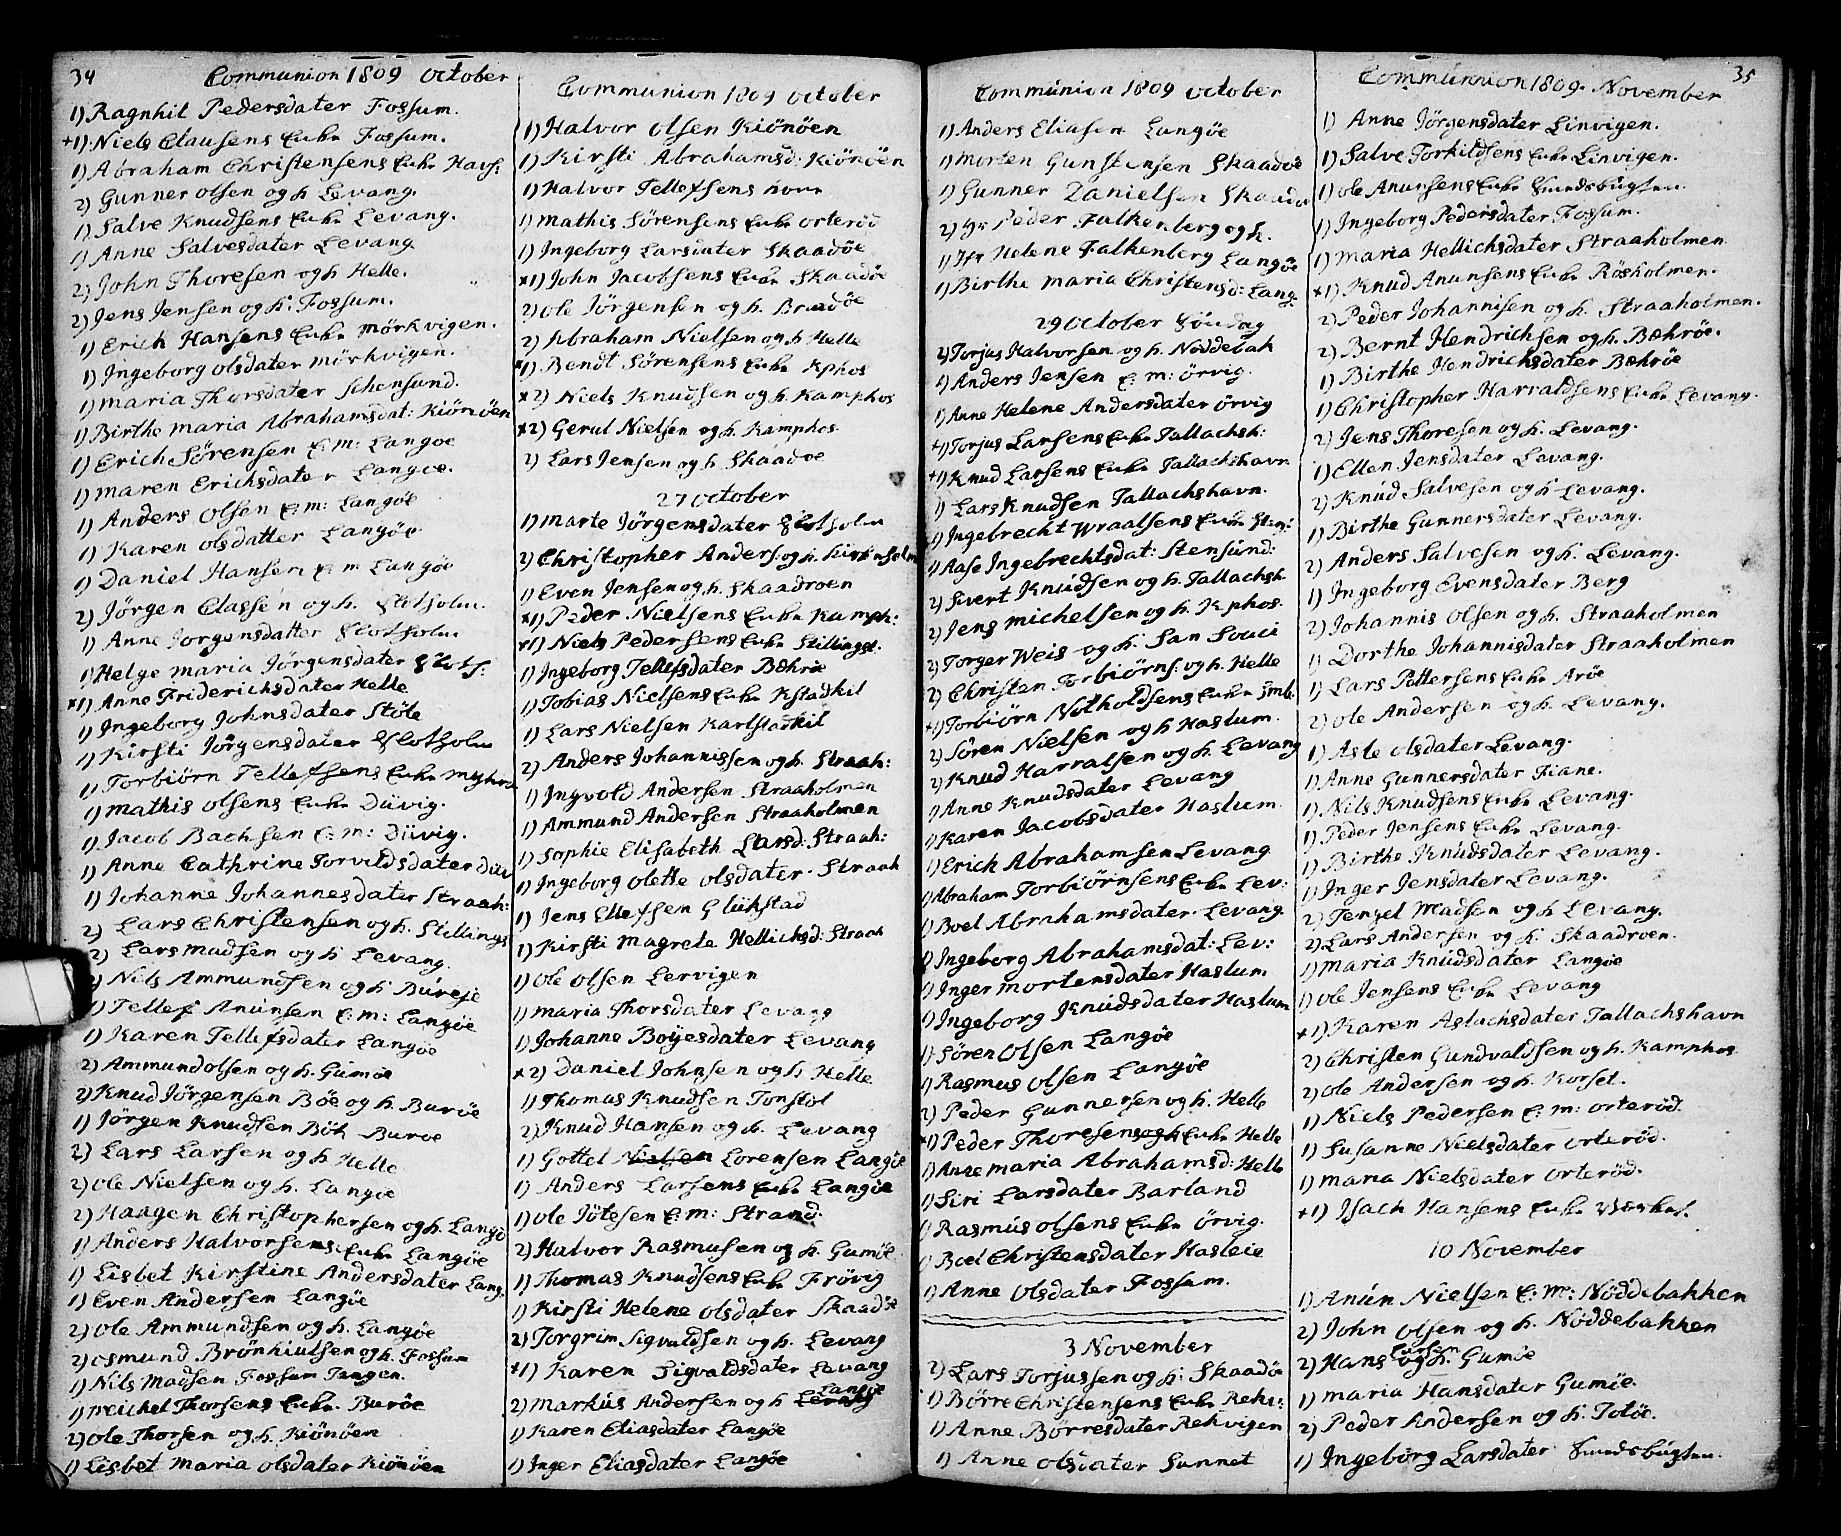 34
Communion 1809 October
1) Ragnhil Pedersdater Fossum.
+1) Niels Clausens Enke Fossum.
1) Abraham Christensens Enke Havf:
2) Gunner Olsen og h Levang.
1) Salve Knudsens Enke Levang.
1) Anne Salvesdater Levang
2) John Thoresen og h Helle.
2) Jens Jensen og h: Fossum.
1) Erich Hansens Enke Mörkvigen.
1) Ingeborg Olsdater Mörkvigen.
1) Maria Thorsdater Schensund.
1) Birthe Maria Abrahamsdat: Kiönöen
1) Erich Sörensen E: M: Langöe
1) Maren Erichsdater Langöe.
1) Anders Olsen E: M: Langöe
1) Karen Olsdatter Langöe
1) Daniel Hansen E: M Langöe
2) Jörgen Classen og h. Slotholm.
1) Anne Jörgensdatter Slotholm
1) Helge Maria Jörgensdater Slots:
*1) Anne Friderichsdater Helle
1) Ingeborg Johnsdater Stöle
1) Kirsti Jörgensdater Slotholm
1) Torbiörn Tellefsens Enke
1) Mathis Olsens Enke Düvig.
1) Jacob Bachsen E: M: Düvig.
1) Anne Cathrine Torvildsdater Düv
1) Johanne Johannesdater Straah:
2) Lars Christensen og h. Stillings
2) Lars Madsen og h Levang.
2) Nils Ammundsen og h Buröe
1) Tellef Anunsen E: M: Langöe
1) Karen Tellefsdater Langöe
2) Ammund Olsen og h. Gumöe
2) Knud Jörgensen Böe og h. Buröe
1) Jörgen Knudsen Böe Buroe
2) Lars Larsen og h Helle
2) Ole Nielsen og h. Langöe
2) Haagen Christophersen og h. Langö
1) Anders Halvorsens Enke Langöe
1) Lisbet Kirstine Andersdater Lang.
1) Even Andersen Langöe
2) Ole Ammundsen og h. Langöe
2) Osmund Brönkiulsen og h. Fossum
1) Nils Madsen Fossum Tangen.
1) Meichel Thorsens Enke Buröe
2) Ole Thorsen og h. Kiönöen
1) Lisbet Maria Olsdater Kiönöen
Communion 1809 October
1) Halvor Olsen Kiönöen
1) Kirsti Abrahamsd: Kiönöen
1) Halvor Tellefsens
1) Mathis Sörensens Enke Orteröd
1) Ingeborg Larsdater Skaadöe
*1) John Jacobsens Enke Skaadöe
2) Ole Jörgensen og h. Bradöe
2) Abraham Nielsen og h Helle
*1) Bendt Sörensens Enke Kphos
*2) Niels Knudsen og h. Kamphos
*2) Gerul Nielsen og h. Kamphos
2) Lars Jensen og h Skaadoe
27 October
1) Marte Jörgensdater Slotholm
2) Christopher Anders. og h.
1) Even Jensen og h. Skaadroen
*1) Peder Nielsens Enke Kamph:
*1) Niels Pedersens Enke Stillingst.
1) Ingeborg Tellefsdater Bækröe
1) Tobias Nielsens Enke Kstadkil
1) Lars Nielsen Karlstadkil
2) Anders Johannissen og h. Straah:
1) Ingvold Andersen Straaholmen
1) Ammund Andersen Straaholmen
1) Sophie Elisabeth Larsd: Straah:
1) Ingeborg Olette Olsdater Straah
1) Jens Ellefsen Glükstad
1) Kirsti Magrete Hellichsd: Straah
1) Ole Olsen Lervigen
1) Maria Thorsdater Levang
1) Johanne Boyesdater Levang
*2) Daniel Johnsen og h Helle
1) Thomas Knudsen Tonstol
2) Knud Hansen og h. Levang
1) Gottel Nielsen Lorensen Langöe
1) Anders Larsens Enke Langöe
1) Ole Jötesen E: M: Strand.
2) Halvor Rasmusen og h. Gumöe
1) Thomas Knudsens Enke Frövig
1) Kirsti Helene Olsdater Skaadöe
2) Torgrim Sigvaldsen og h. Levang
*1) Karen Sigvaldsdater Levang
2) Markus Andersen og h Levang Langöe
1) Karen Eliasdater Langöe
1) Inger Eliasdater Langöe
Communion 1809 October
1) Anders Eliasen Langöe
1) Morten Gunstensen Skaadöe
1) Gunner Danielsen Skaadö
2) Hr Peder Falkenberg og h.
1) Jfr Helene Falkenberg Langöe
1) Birthe Maria Christensd: Lang:
29 October Söndag
2) Torjus Halvorsen og h. Nöddebak
1) Anders Jensen E: M: Örvig.
1) Anne Helene Andersdater Örvig
+1) Torjus Larsens Enke Tallachsh:
+1) Knud Larsens Enke Tallachshavn
1) Lars Knudsen Tallachshavn.
1) Ingebrecht Wraalsens Enke Sten:
1) Aase Ingebrechtsdat: Stensund:
2) Sivert Knudsen og h. Tallachsh.
2) Jens Michelsen og h. Kphos.
2) Torger Weis og h: San Souci
2) Christen Torbiörns: og h. Helle
+1) Torbiörn Notholdsens Enke Smb.
2) Sören Nielsen og h Haslum.
2) Knud Harralsen og h. Levang
1) Anne Knudsdater Levang
1) Karen Jacobsdater Haslum
1) Erich Abrahamsen Levang
1) Abraham Torbiörnsens Enke Lev:
1) Boel Abrahamsdater Levang.
1) Ingeborg Abrahamsdat: Lev:
1) Inger Mortensdater Haslum
1) Ingeborg Knudsdater Haslum
1) Sören Olsen Langöe
1) Rasmus Olsen Langöe
2) Peder Gunnersen og h. Helle
*1) Peder Thoresens og h Enke Helle
1) Anne Maria Abrahamsd: Helle
1) Siri Larsdater Barland
1) Rasmus Olsens Enke Örvig.
1) Boel Christensdater Hasleie
1) Anne Olsdater Fossum.
3 November
2) Lars Torjussen og h: Skaadöe
1) Börre Christensens Enke Rekv:
1) Anne Börresdater Rekvigen
1) Anne Olsdater Sunnet
35
Communion 1809. November
1) Anne Jörgensdater Linvigen.
1) Salve Torkildsens Enke Linvigen.
1) Ole Anunsens Enke Smedsbugten.
1) Ingeborg Pedersdater Fossum.
1) Maria Hellichsdater Straaholmen
*1) Knud Anunsens Enke Rösholmen.
2) Peder Johannisen og h. Straaholmen.
2) Bernt Hendrichsen og h. Bækröe.
1) Birthe Hendrichsdater Bækröe
1) Christopher Harraldsens Enke Levang.
2) Jens Thoresen og h. Levang.
1) Ellen Jensdater Levang.
2) Knud Salvesen og h Levang.
1) Birthe Gunnersdater Levang.
2) Anders Salvesen og h. Levang.
1) Ingeborg Evensdater Berg
2) Johannis Olsen og h. Straaholmen
1) Dorthe Johannisdater Straaholmen
1) Lars Pettersens Enke Aröe
2) Ole Andersen og h. Levang.
1) Asle Olsdater Levang.
1) Anne Gunnersdater Fiane.
1) Nils Knudsens Enke Levang.
1) Peder Jensens Enke Levang.
1) Birthe Knudsdater Levang.
1) Inger Jensdater Levang.
2) Tengel Madsen og h Levang.
2) Lars Andersen og h: Skaadroen.
1) Maria Knudsdater Langöe
1) Ole Jensens Enke Levang
*1) Karen Aslachsdater Tallachshavn
2) Christen Gundvaldsen og h. Kamphos
2) Ole Andersen og h. Korset.
1) Niels Pedersen E: M: Orteröd.
1) Susanne Nielsdater Orteröd.
1) Maria Nielsdater Orteröd.
*1) Isach Hansens Enke
10 November
1) Anün Nielsen E: M: Nöddebakken
2) John Olsen og h. Nöddebakken
2) Hans Larsen og h. Gumöe
1) Maria Hansdater Gumöe.
2) Peder Andersen og h. Totöe.
1) Ingeborg Larsdater Smedsbugten.